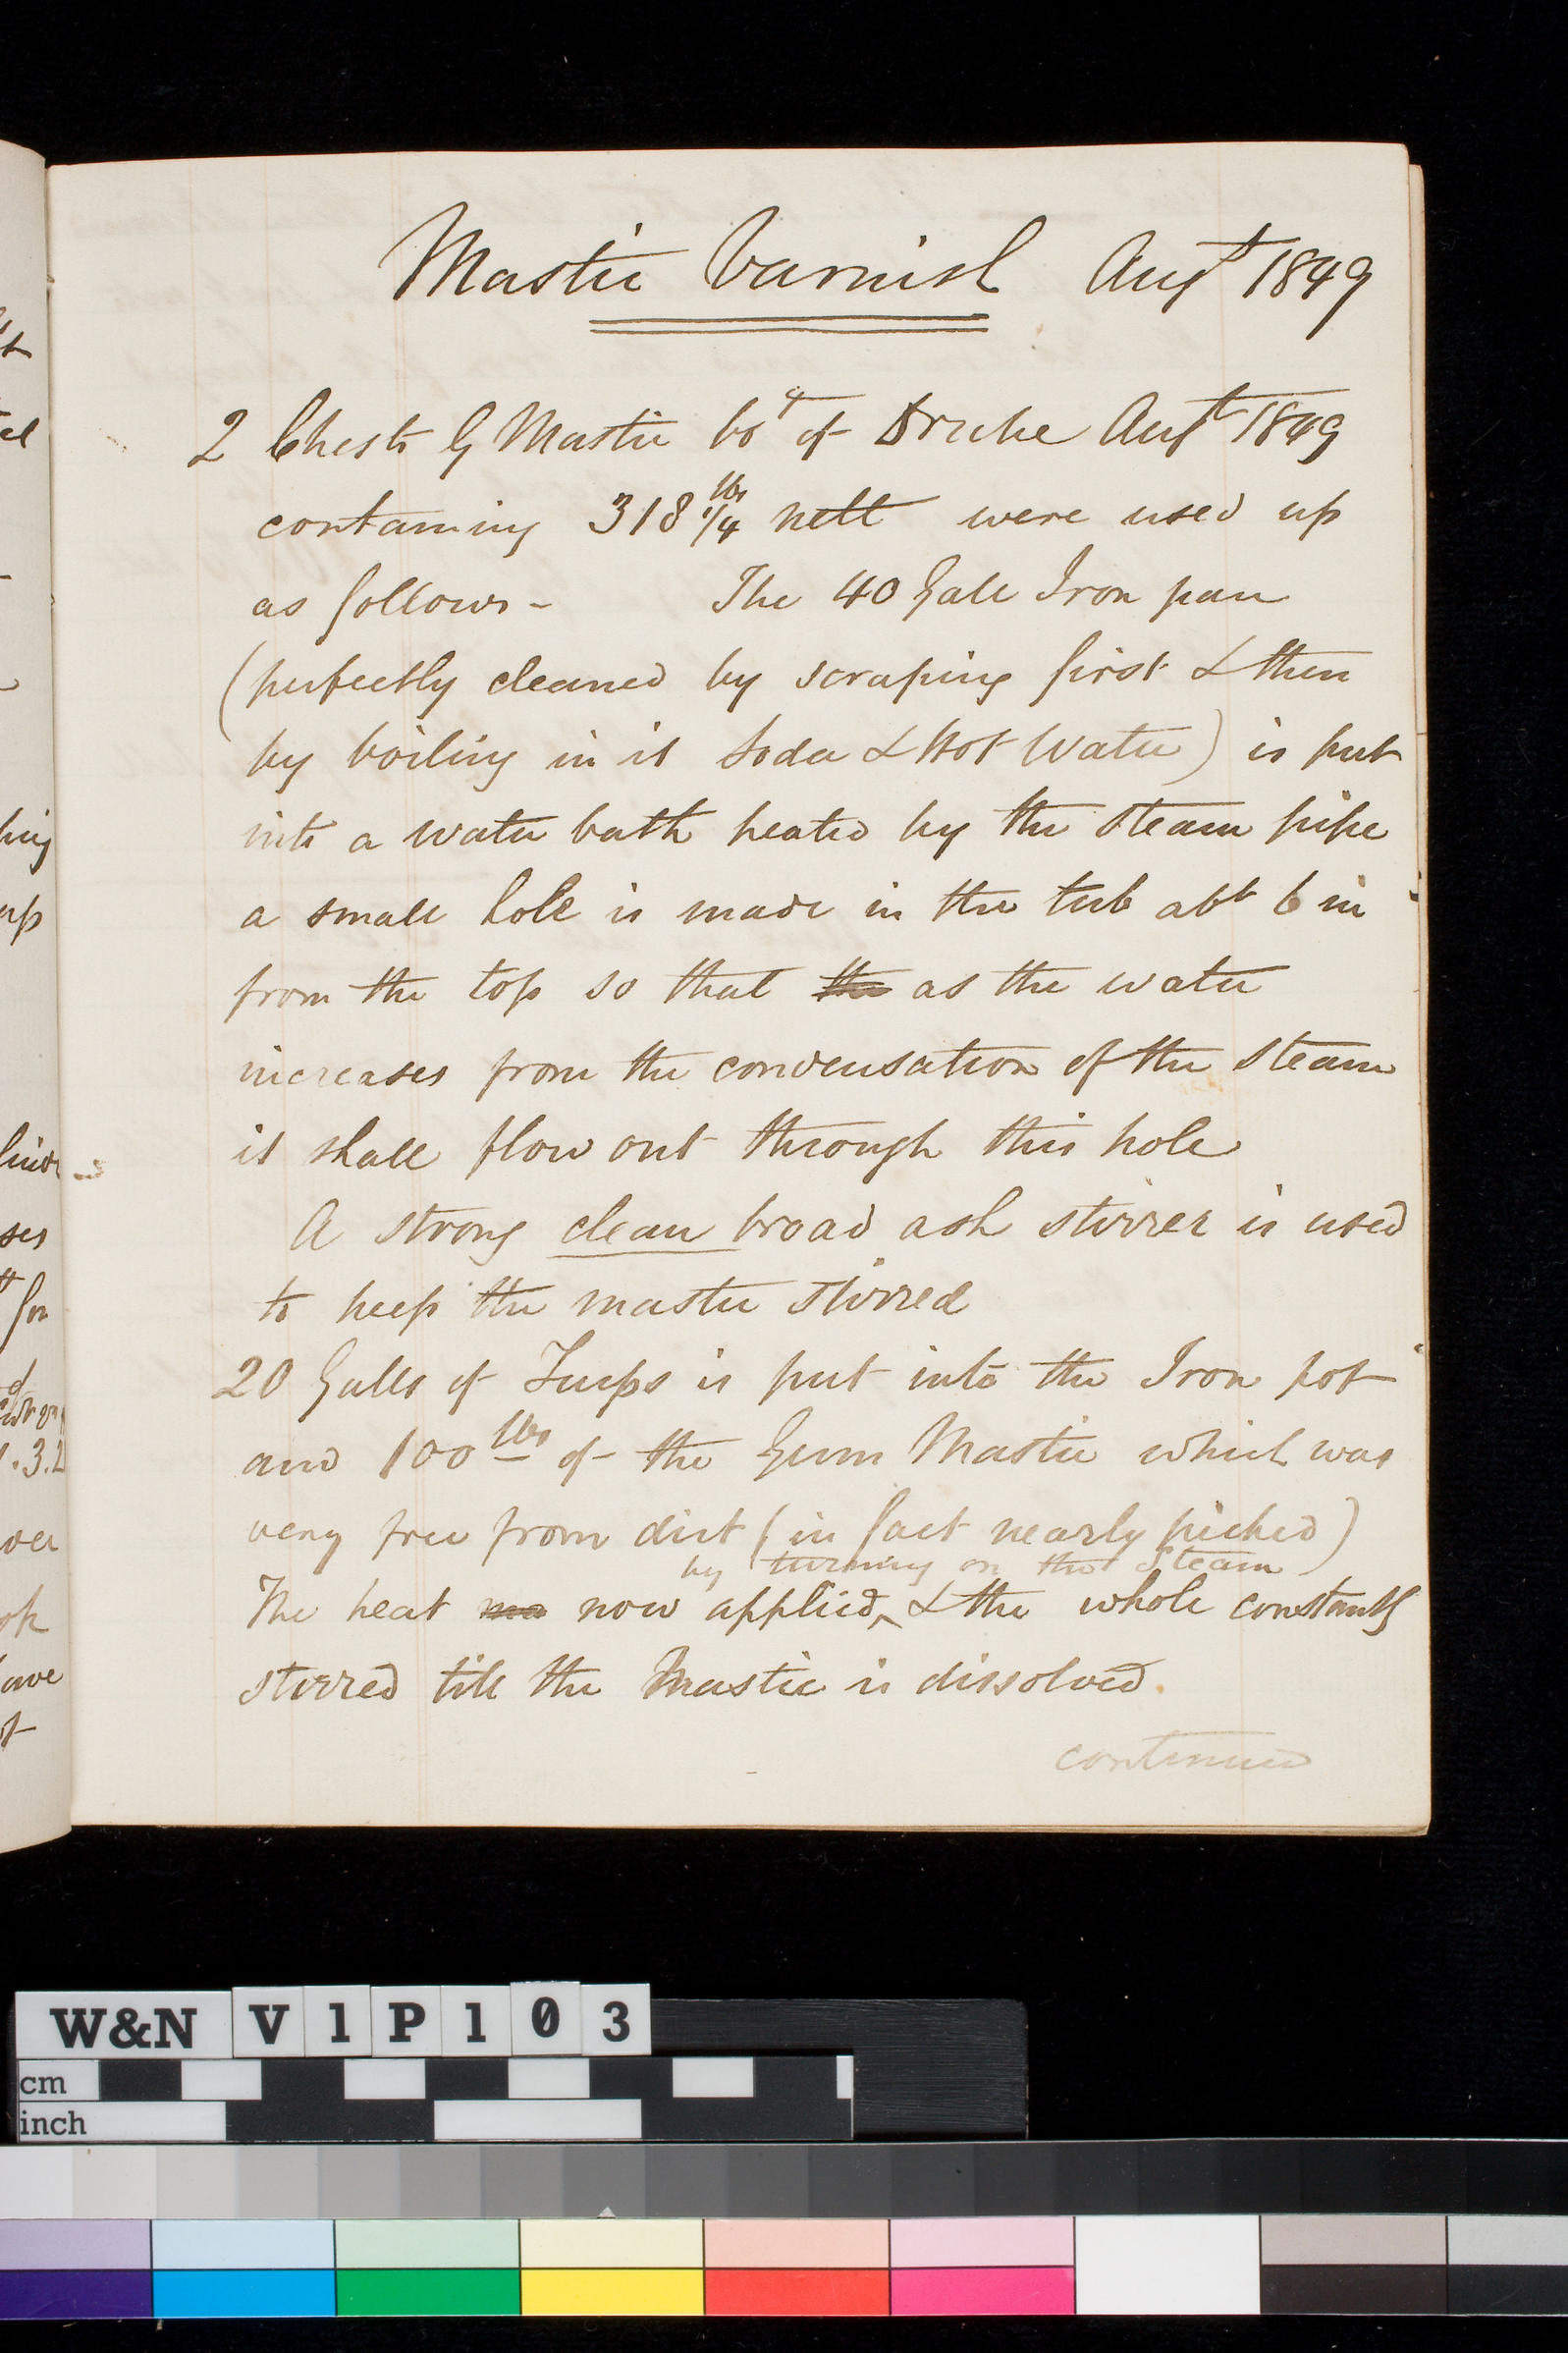 Mastic Varnish Augt 1849
2 Chests G Mastic bot of Augt 1849
containing 318 1/4 lbs nett were used up
as follows - The 40 Gall Iron pan
(perfectly cleaned by scraping first & then
by boiling in it Soda & Hot Water) is put
into a water bath heated by the steam pipe
a small hole is made in the tub abt 6 in
from the top so that the as the water
increases from the condensation of the steam
it shall flow out through this hole
A strong clean broad ash stirrer is used
to keep the mastic stirred
20 Galls of Turps is put into the Iron pot
and 100 lbs of the Gum Mastic which was
very free from dirt (in fact nearly picked)
by turning on the Steam
The heat now applied, & the whole constantly
stirred till the Mastic is dissolved.
continued
W&N V1P103
cm
inch